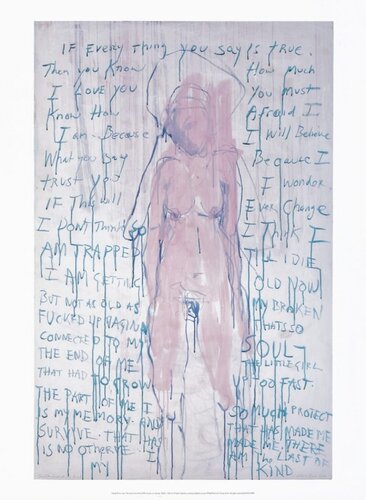 IF Every thing you say Is true.
Then you Know How much
I Love you You Must
Know How Afraid I
I am Because I Will Believe
What you Say Because I
trust you I Wonder
IF This will Ever Change
I DONT Think SO I Think I
AM TRAPPED TILL I DIE
I AM GETTING OLD NOW
BUT NOT AS OLD AS MY BROKEN
FUCKED UP VAGINA THATS SO
CONNECTED TO MY SOUL
THE END OF ME THE LITTLE GIRL
THAT HAD TO GROW UP TOO FAST.
THE PART OF ME I SO MUCH PROTECT
IS MY MEMORY AND THAT HAS MADE ME
SURVIVE. THAT HAS MADE ME. THERE
IS NO OTHER I AM THE LAST OF
MY KIND